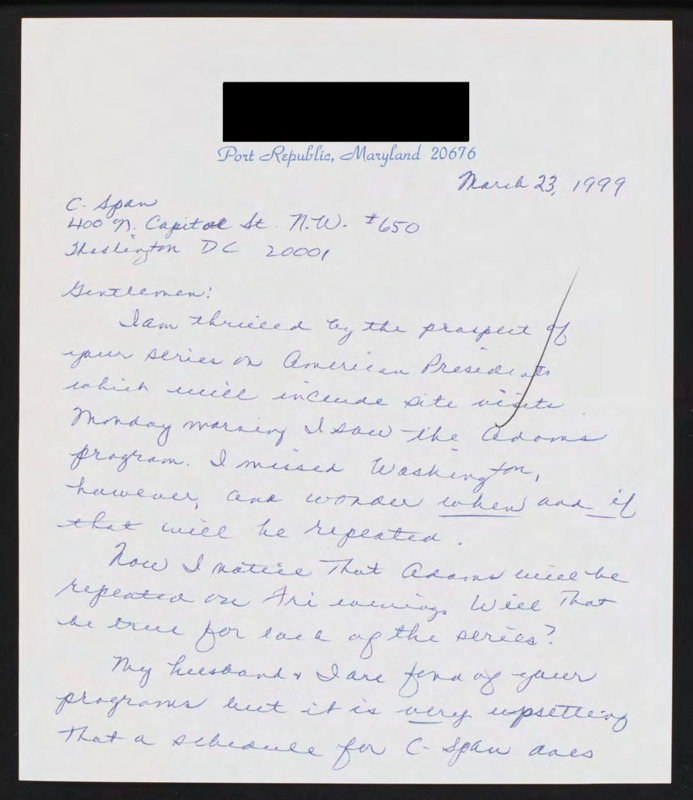 Port Republic, Maryland 20676
March 23, 1999
C-Span
400 N. Capitol St. N.W. #650
Washington DC 20001
Gentlemen:
I am thrilled by the prospect of
your series on American Presidents
which will include site visits.
Monday morning I saw the Adams
program. I missed Washington,
however, and wonder when and if
that will be repeated.
Now I notice That Adams will be
repeated on Fri evenings. Will That
be true for each of the series?
My husband & I are fond of your
programs but it is very upsetting
That a schedule for C-Span does